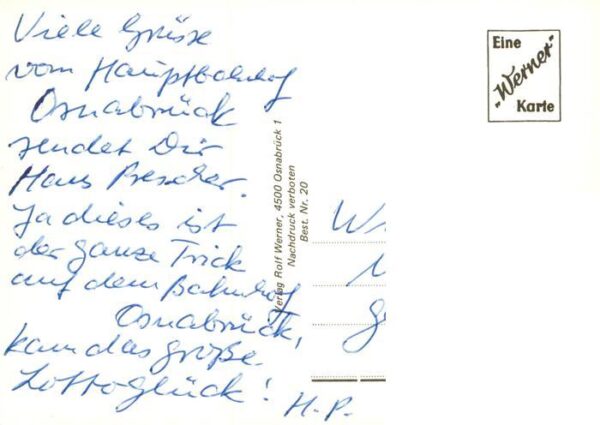 Viele Grüsse
vom Hauptbahnhof
Osnabrück
sendet Dir
Hans
Ja dieses ist
der ganze Trick
auf dem Bahnhof
Osnabrück,
kam das große
Lottoglück!
H.P.
Verlag Rolf Werner, 4500 Osnabrück 1
Nachdruck verboten
Best. Nr. 20
Eine
„Werner"
Karte